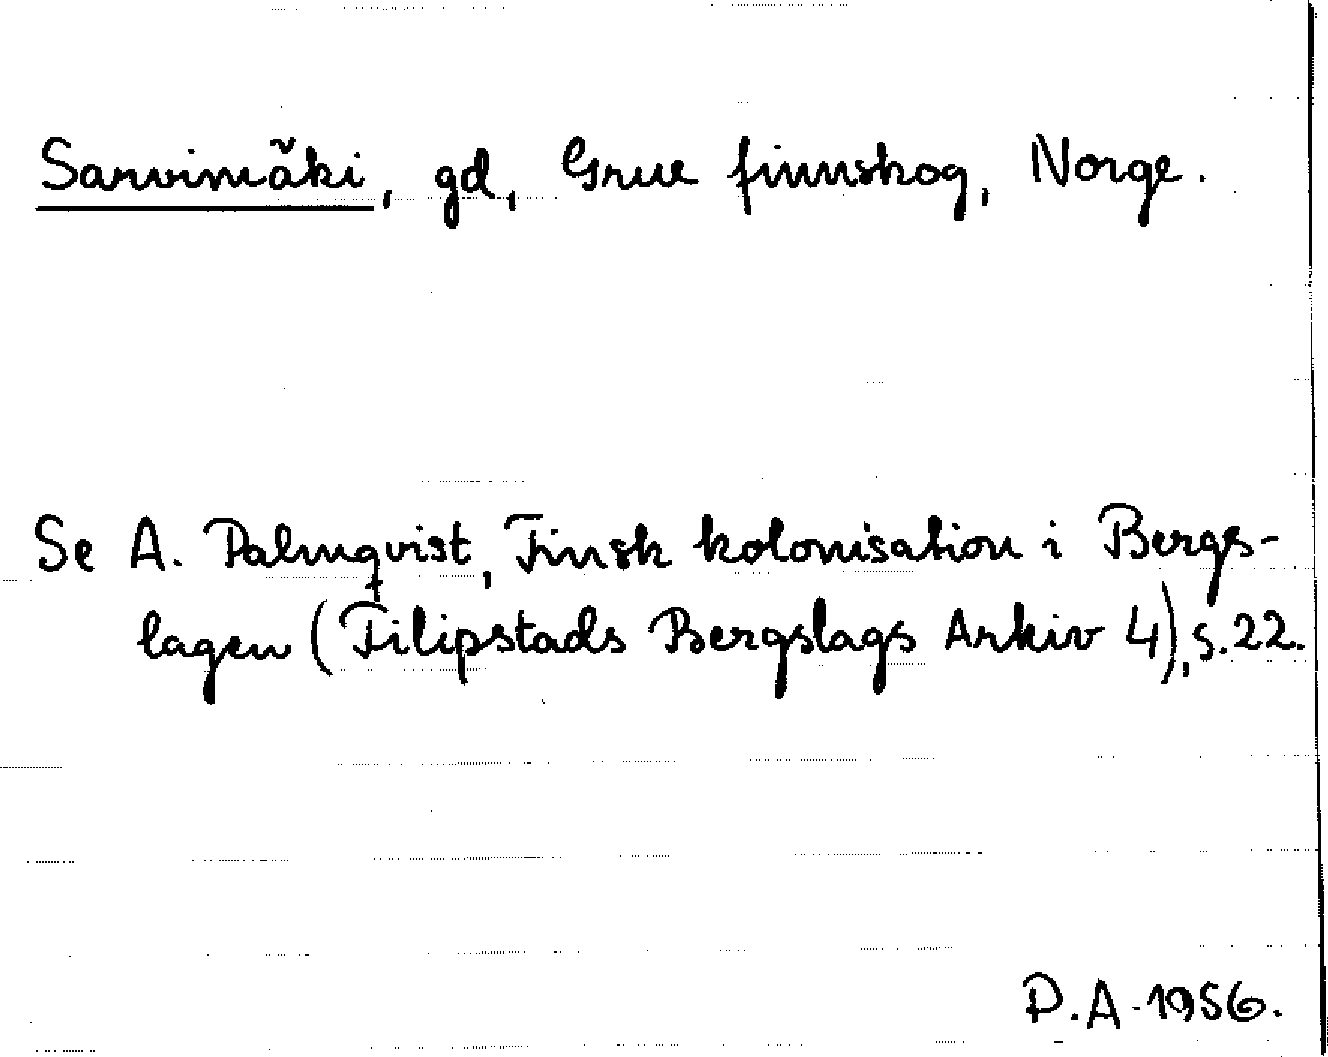 Sarvimäki, gd, Grue finnskog, Norge.
Se A. Palmqvist, Finsk kolonisation i Bergs-
lagen (Filipstads Bergslags Arkiv 4), s. 22.
P.A. 1956.